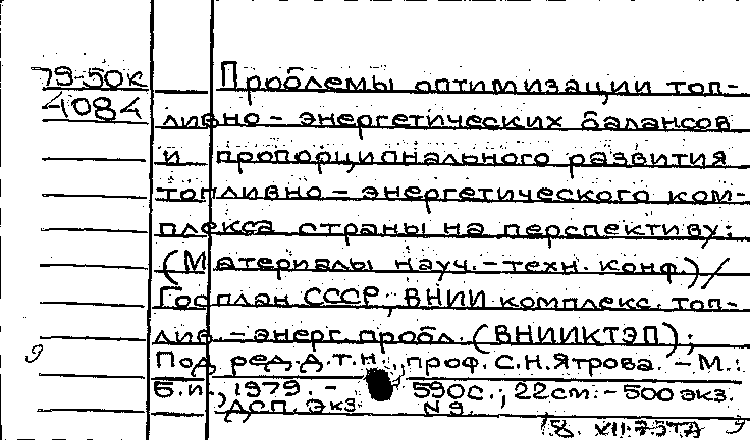 79-50к Проблемы оптимизации топ-
4084 ливно-энергетических балансов
и пропорционального развития
топливно-энергетического ком-
плекса страны на перспективу:
(Материалы науч.-техн. конф.) /
Госплан СССР, ВНИИ комплекс. топ-
лив.-энерг. пробл. (ВНИИКТЭП);
Под ред. д.т.н., проф. С.Н. Ятрова. - М.:
Б.и., 1979. - 590с.; 22см. - 500 экз.
ДСП. Экз. N9.